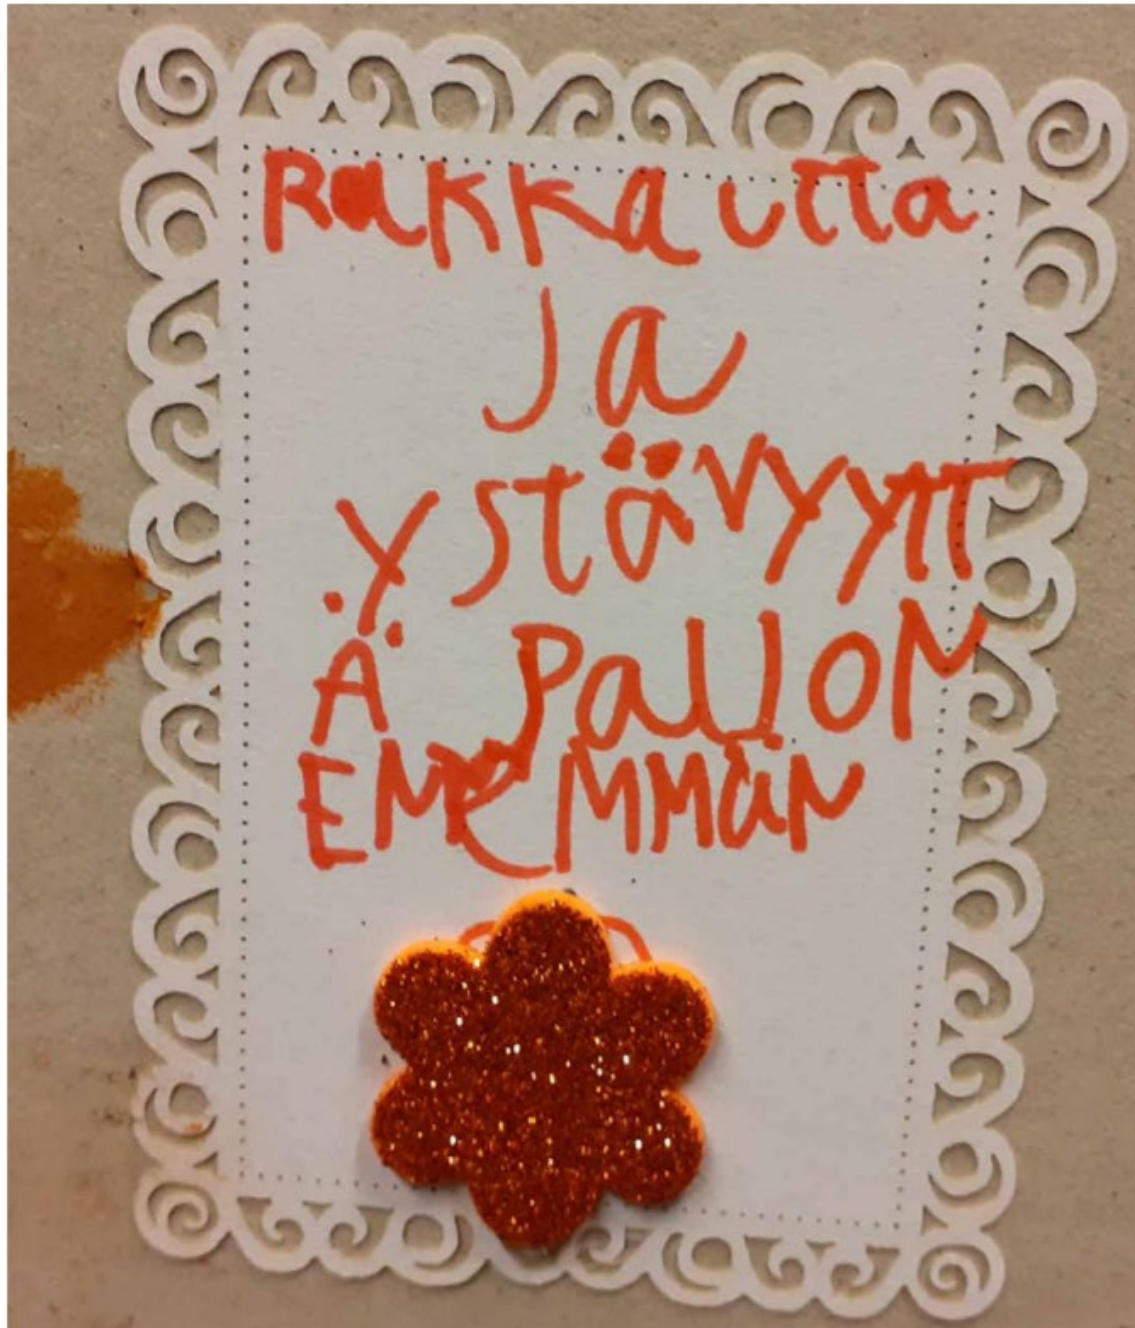 Rakkautta
Ja
Ystävyytt
Ä Pallon
ENeMMäN